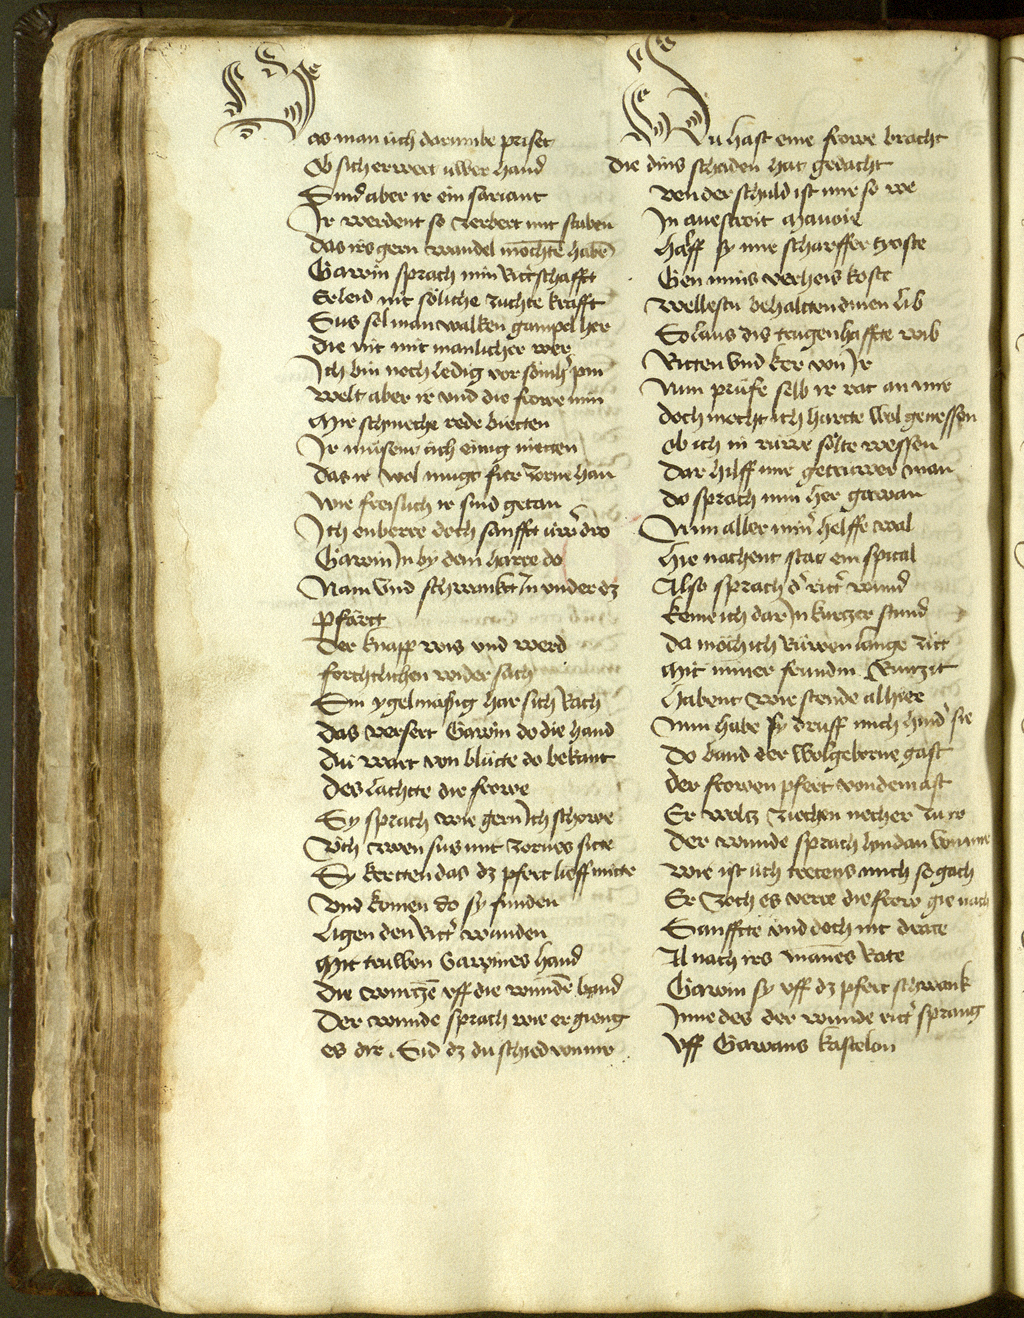 Das man üch darumbe priset
Ob sich erwert üwer hand
Sind aber ir ein sariant
Ir werdent so zerbert mit staben
Das irs gern wandel möchtē habē
Gawin sprach min Rittˢschafft
Erleid nit söliche zuchte krafft
Sus sol man walken gampel her
die nit mit manlicher wer
Ich bin noch ledig vor sömlichˢ pin
welt aber ir und die frowe min
Mir schmeche rede bietten
Ir müsent üch einig nietten
Das ir wol mugt fúr zorne han
wie freislich ir sind getan
Ich enberre doch sanfft úwˢ dro
Gawin In by dem harre do
Nam und schwankt In under dz
Pfärtt
Der knapp wis und werd
forchtlichen wider sach
Sin ygelmässig har sich Rach
das versert Gawin do die hand
Dü wart von blütte do bekant
Des lachtte die frowe
Sy sprach wie gern Ich schowe
Úch zwen sus mit zornes sitte
Sy kertten das dz pfert lieff mitte
Und komen do sy funden
Ligen den Rittˢ wunden
Mit trúwen Gawines hand
Die wurtzē uff die wundē band
Der wunde sprach wie er gieng
es dir. Sid dz du schied von mir
Du hast eine frowe bracht
die dins schaden hat gedacht
von der schuld ist mir so we
In avestroit mavoie
halff sy mir scharffer tyoste
Gen mins verheis koste
wellestu behaltten dinen lib
So laus dis trugenhaffte wib
Ritten und ker von Ir
Nun prúfe selb ir rat an mir
doch mocht ich hartte wol genessen
ob ich in ruwe sölte wessen
Dar hilff mir getrúwer man
do sprach min her gawan
Nim aller minˢ helffe wal
hie nachent stat ein spital
Also sprach dˢ rittˢ wund
keme ich dar In kurtzer stund
da möcht ich Rúwen lange zitt
Mit miner frúndin Runzit
habent wir stende alhiee
Nun habe sy druff mich hindˢ sie
Do band der wolgeborne gast
der frowen pfert von dem ast
Er woltz ziechen necher zu ir
Der wunde sprach hindan von mir
wie ist üch trettens mich so gach
Er zoch es verre die frow gie nach
Sanfftte und doch nit dratte
Al nach irs mannes Ratte
Gawin sy uff dz pfert schwank
Inne des der wunde rittˢ sprang
Uff Gawans kastelon